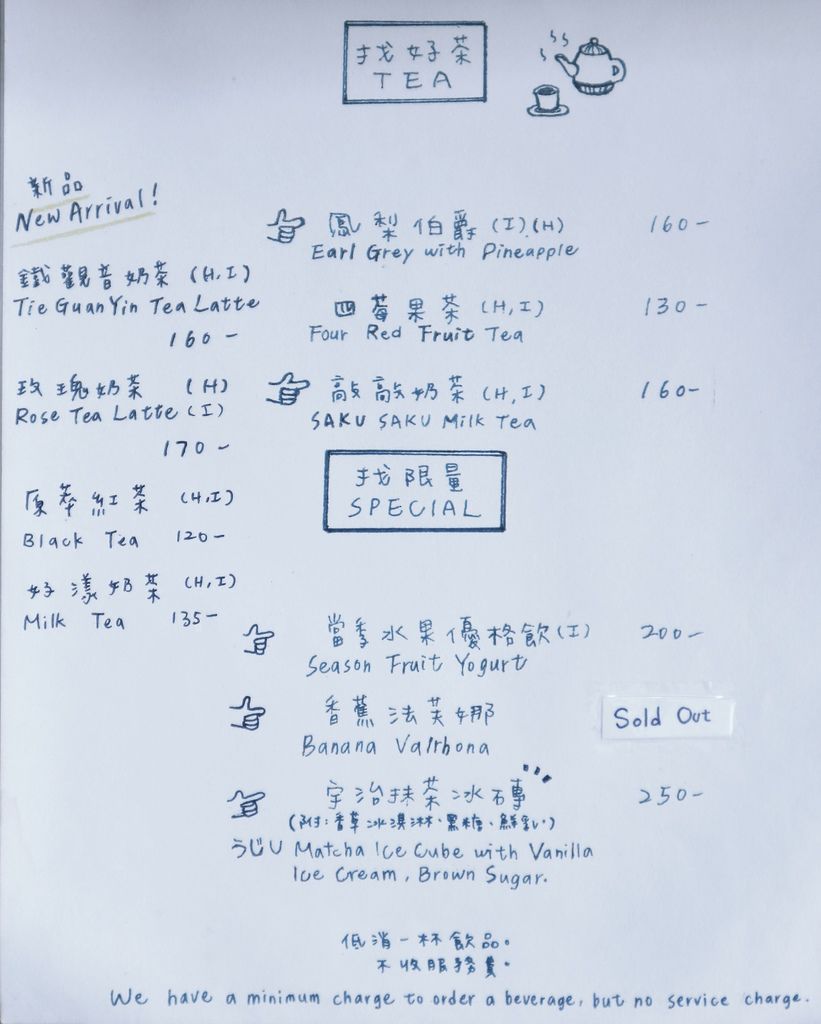 找好茶
TEA
新品
New Arrival!
鐵觀音奶茶 (H,I)
Tie GuanYin Tea Latte
160-
玫瑰奶茶 (H)
Rose Tea Latte (I)
170-
原萃紅茶 (H,I)
Black Tea 120-
好漾奶茶 (H,I)
Milk Tea 135-
鳳梨伯爵 (I)(H) 160-
Earl Grey with Pineapple
四莓果茶 (H,I) 130-
Four Red Fruit Tea
敲敲奶茶 (H,I) 160-
SAKU SAKU Milk Tea
找限量
SPECIAL
當季水果優格飲(I) 200-
Season Fruit Yogurt
香蕉法芙娜 Sold Out
Banana Valrhona
宇治抹茶冰磚 250-
(附:香草冰淇淋、黑糖、鮮乳)
うじU Matcha Ice Cube with Vanilla
Ice Cream, Brown Sugar.
低消一杯飲品。
不收服務費。
We have a minimum charge to order a beverage, but no service charge.